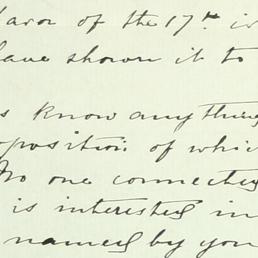 favor of the 17th is
have shown it to
s know anything
oposition of which
No one connected
is interested in
named by you